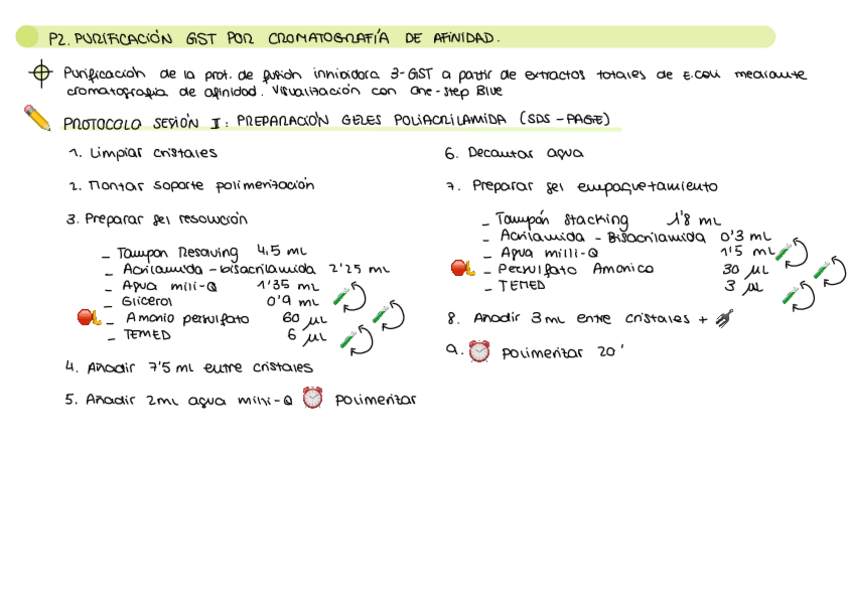 P2. PURIFICACIÓN GST POR CROMATOGRAFÍA DE AFINIDAD.
Purificación de la prot. de fusión inhibidora 3-GST a partir de extractos totales de E.coli mediante
cromatografía de afinidad. Visualización con One-Step Blue
PROTOCOLO SESIÓN I: PREPARACIÓN GELES POLIACRILAMIDA (SDS-PAGE)
1. Limpiar cristales
2. Montar soporte polimerización
3. Preparar gel resolución
- Tampon Resolving 4,5 mL
- Acrilamida - bisacrilamida 2'25 mL
- Agua mili-Q 1'35 mL
- Glicerol 0'9 mL
- Amonio persulfato 60 µL
- TEMED 6 µL
4. Añadir 7'5 mL entre cristales
5. Añadir 2mL agua milli-Q polimerizar
6. Decantar agua
7. Preparar gel empaquetamiento
- Tampón Stacking 1'8 mL
- Acrilamida - Bisacrilamida 0'3 mL
- Agua milli-Q 1'5 mL
- Persulfato Amonico 30 µL
- TEMED 3 µL
8. Añadir 3mL entre cristales +
9. polimerizar 20'